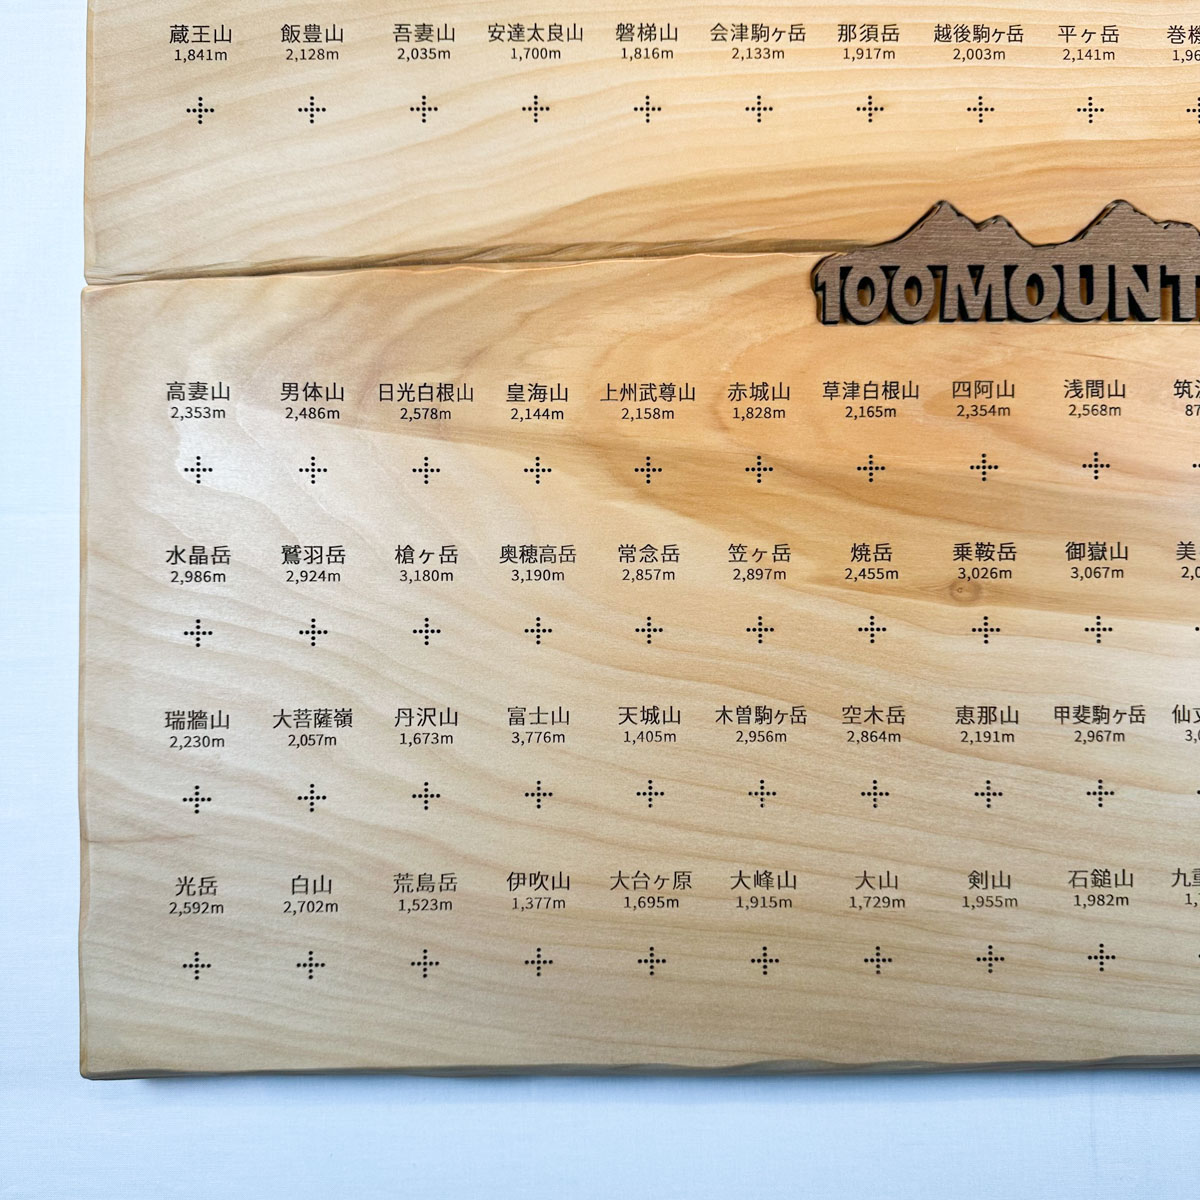 蔵王山 飯豊山 吾妻山 安達太良山 磐梯山 会津駒ヶ岳 那須岳 越後駒ヶ岳 平ヶ岳
1,841m 2,128m 2,035m 1,700m 1,816m 2,133m 1,917m 2,003m 2,141m
100 MOUNT
高妻山 男体山 日光白根山 皇海山 上州武尊山 赤城山 草津白根山 四阿山 浅間山
2,353m 2,486m 2,578m 2,144m 2,158m 1,828m 2,165m 2,354m 2,568m
水晶岳 鷲羽岳 槍ヶ岳 奥穂高岳 常念岳 笠ヶ岳 焼岳 乗鞍岳 御嶽山 美
2,986m 2,924m 3,180m 3,190m 2,857m 2,897m 2,455m 3,026m 3,067m
瑞牆山 大菩薩嶺 丹沢山 富士山 天城山 木曽駒ヶ岳 空木岳 恵那山 甲斐駒ヶ岳 仙
2,230m 2,057m 1,673m 3,776m 1,405m 2,956m 2,864m 2,191m 2,967m
光岳 白山 荒島岳 伊吹山 大台ヶ原 大峰山 大山 剣山 石鎚山 九
2,592m 2,702m 1,523m 1,377m 1,695m 1,915m 1,729m 1,955m 1,982m